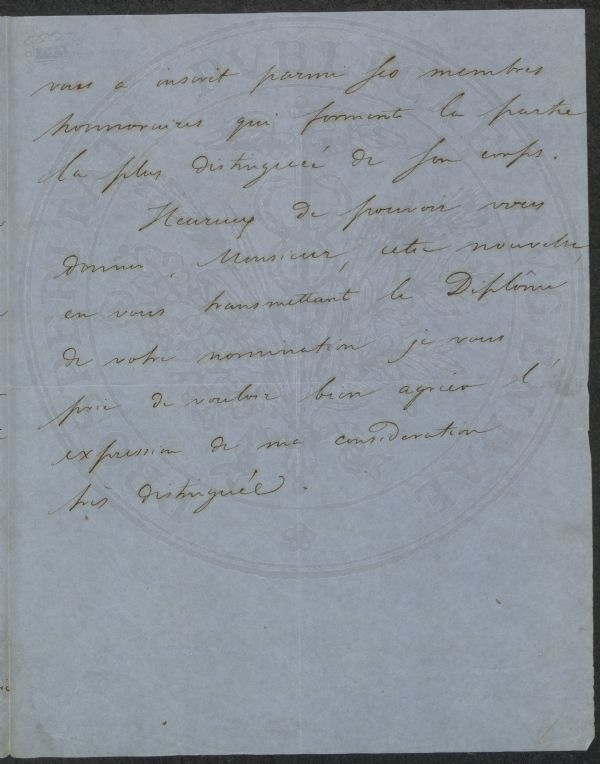 vous a inscrit parmi ses membres
honnoraires qui forment la partie
la plus distinguée de son corps.
Heureux de pouvoir vous
donner, Monsieur, cette nouvelle,
en vous transmettant le Diplôme
de votre nomination je vous
prie de vouloir bien agréer l'
expression de ma consideration
très distinguée.